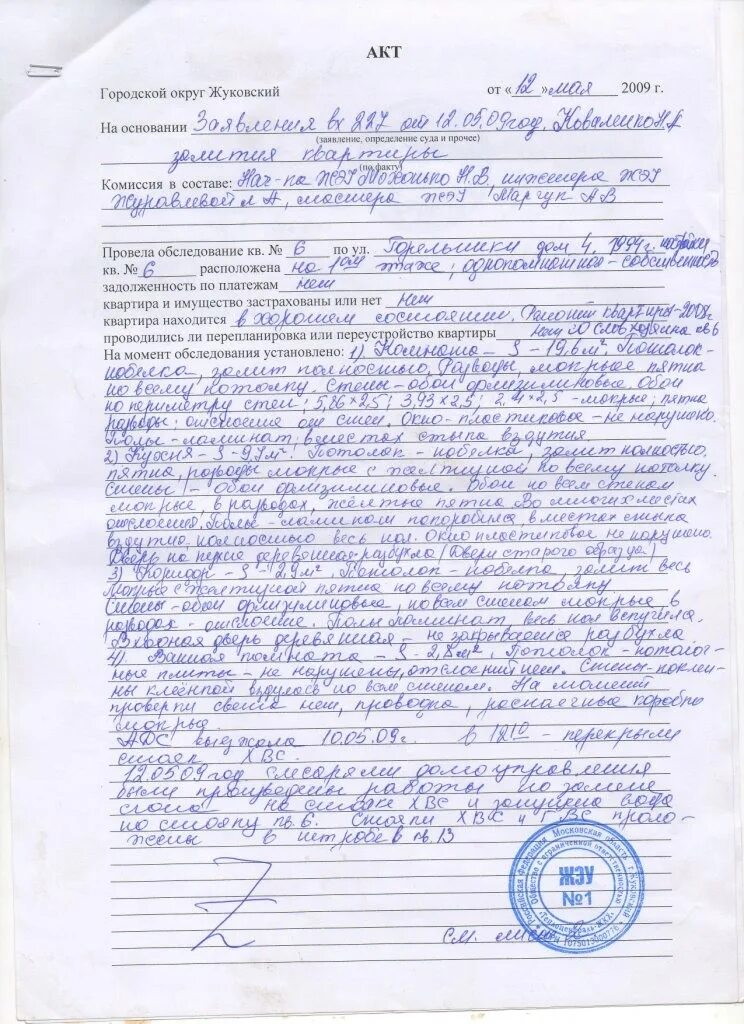 АКТ
Городской округ Жуковский от «12» мая 2009 г.
На основании Заявления вх 227 от 12.05.09год. Коваленко Н.А
(заявление, определение суда и прочее)
залития квартиры
(по факту)
Комиссия в составе: Нач-ка ЖЭУ Н.В, инженера ЖЭУ
Журавлевой Л А, мастера ЖЭУ Марчук А В
Провела обследование кв. № 6 по ул. Горельники дом 4, 1994г. постройки
кв. № 6 расположена на 1ом этаже, однокомнатная - собственность
задолженность по платежам нет
квартира и имущество застрахованы или нет нет
квартира находится в хорошем состоянии. Ремонт квартиры-2008г
проводились ли перепланировка или переустройство квартиры нет со слов хозяина кв 6
На момент обследования установлено: 1) Комната - S - 19,6 м². Потолок-
побелка, залит полностью. Разводы, мокрые пятна
по всему потолку. Стены - обои флизилиновые. Обои
по периметру стен; 5,86×2,5; 3,93×2,5; 2,41×2,5 - мокрые; пятна
разводы; отслоения от стен. Окно - пластиковое - не нарушено.
Полы - ламинат; в местах стыка вздутия.
2) Кухня - S - 9,7м². Потолок - побелка, залит полностью.
пятна, разводы мокрые с желтизной по всему потолку.
Стены - обои флизилиновые. Обои по всем стенам
мокрые, в разводах, жёлтые пятна. Во многих местах
отслоения. Полы - ламинат покоробился в местах стыка
вздутие, полностью весь пол. Окно пластиковое не нарушено.
Дверь на кухне деревянная - разбухла (Двери старого образца)
3) Коридор - S - 2,9м². Потолок - побелка, залит весь
Мокрые с желтизной пятна по всему потолку
Стены - обои флизилиновые, по всем стенам мокрые в
разводах - отслоение. Полы ламинат, весь пол вспучило.
Входная дверь деревянная - не закрывается разбухла
4). Ванная комната - S - 2,8м². Потолок - потолоч-
ные плиты - не нарушены, отслоений нет. Стены - поклее-
ны клеёнкой вздулось по всем стенам. На момент
проверки света нет, проводка, распаечные коробки
мокрые.
АДС выезжала 10.05.09г. в 12 10 - перекрыли
стояк ХВС.
12.05.09год слесарями домоуправления
были произведены работы по замене
на стояке ХВС и запущена вода
по стояку кв. 6. Стояки ХВС и ГВС проло-
жены в штробе в кв. 13
См. лист 2
Российская Федерация Московская область г. Жуковский
Общество с ограниченной ответственностью
ЖЭУ
№1